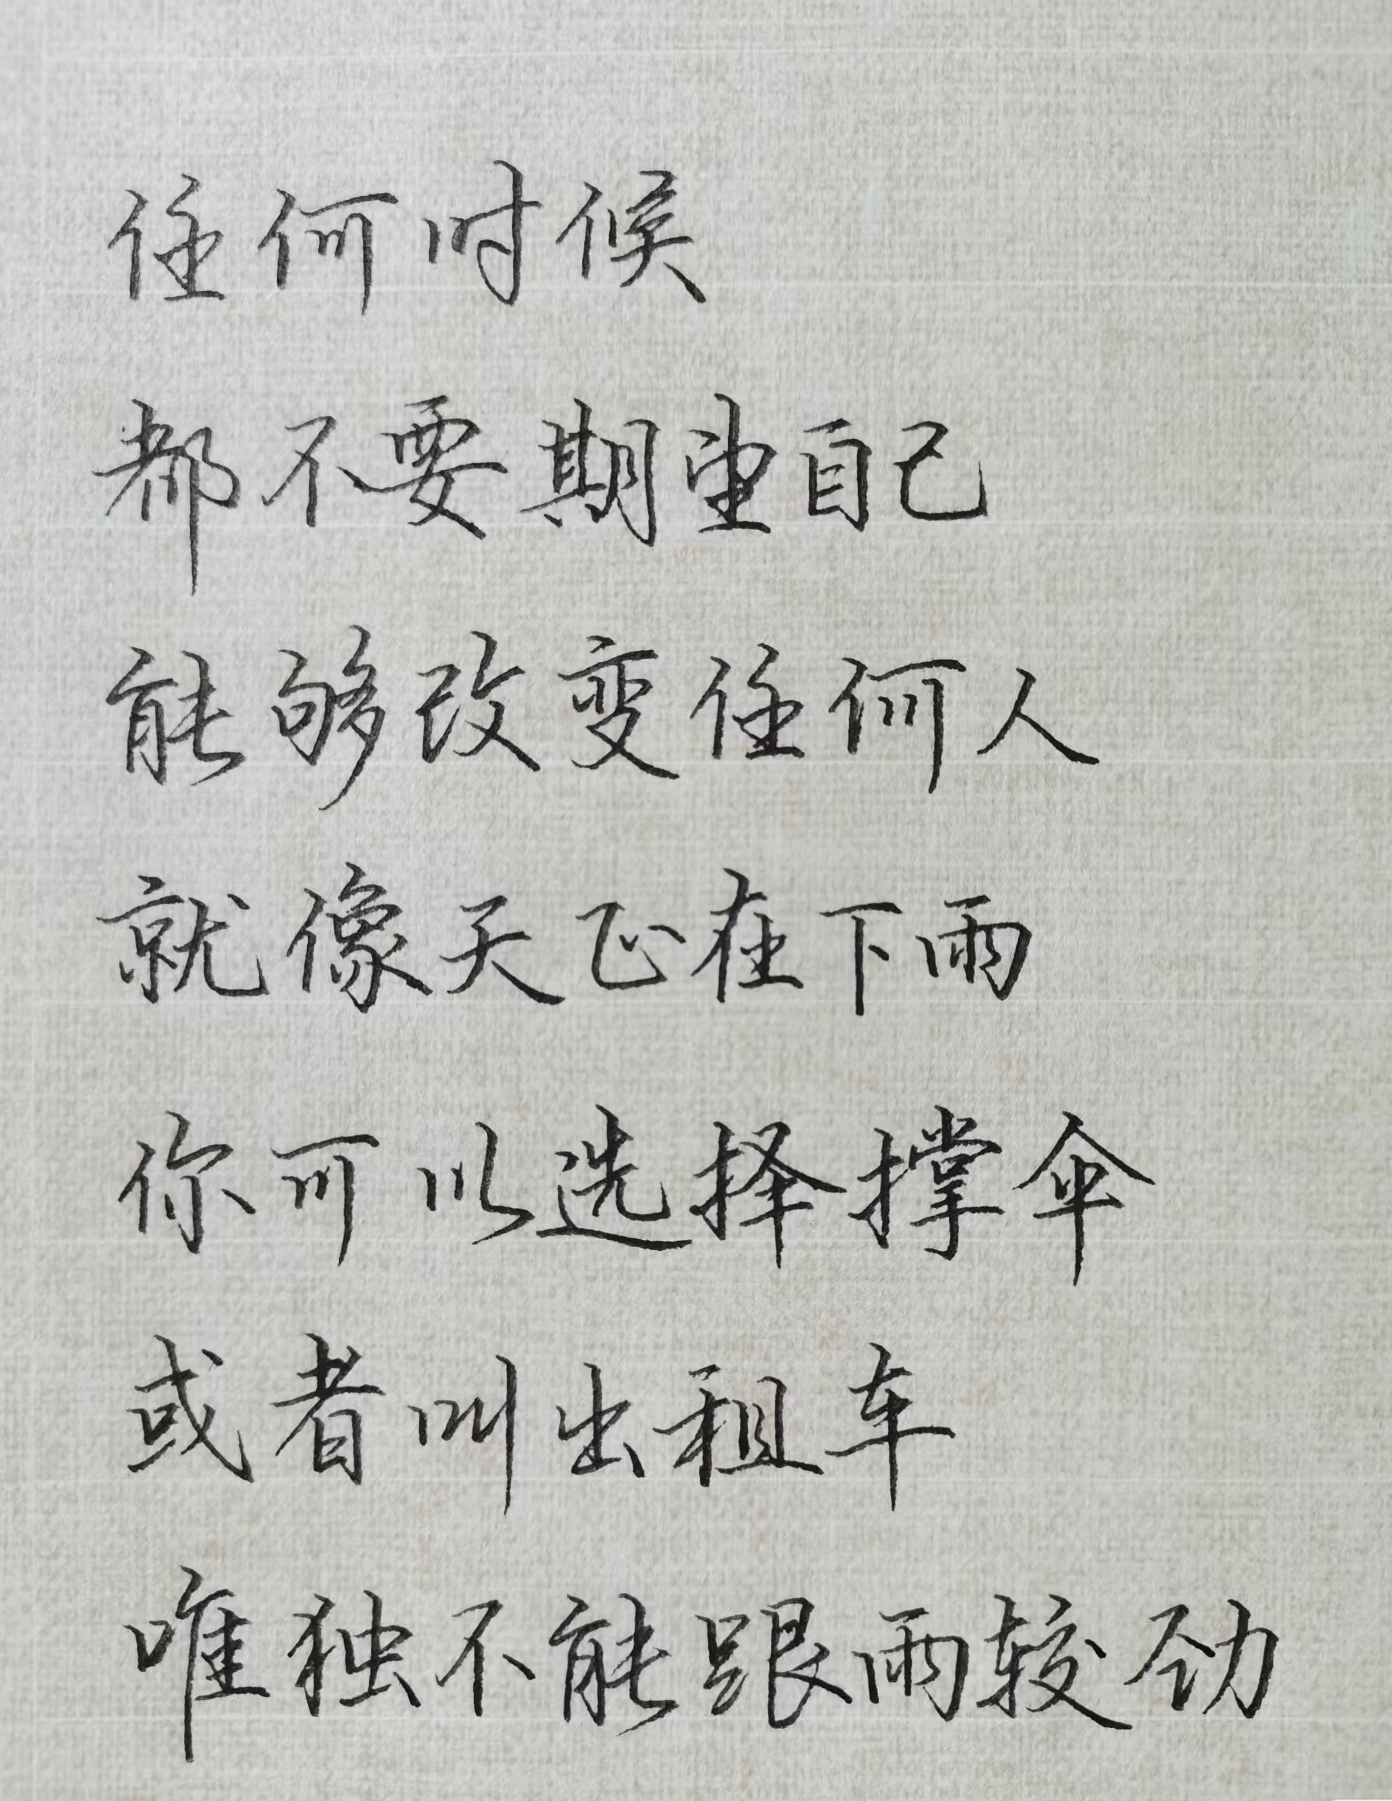 任何时候
都不要期望自己
能够改变任何人
就像天正在下雨
你可以选择撑伞
或者叫出租车
唯独不能跟雨较劲